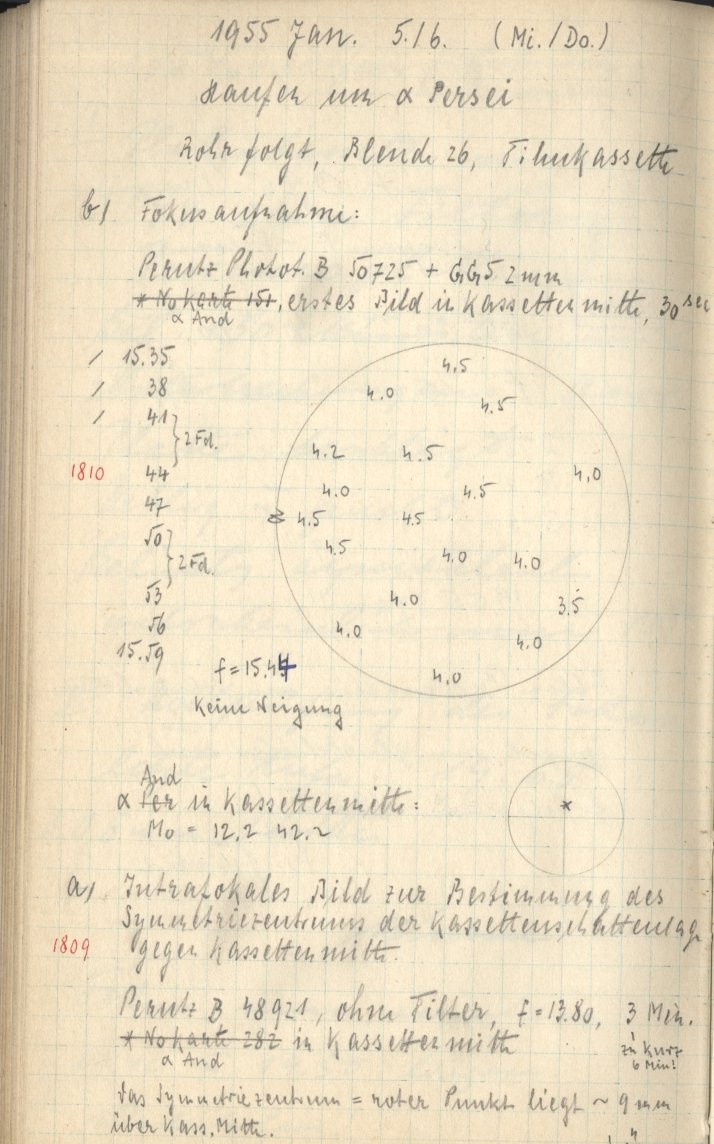 1955 Jan. 5./6. (Mi./Do.)
Haufen um α Persei
Rohr folgt, Blende 26, Filmkassette
b) Fokusaufnahme:
Perutz Photot. B 50725 + GG5 2mm
* No Karte 151, erstes Bild in Kassettenmitte, 30 sec
α And
15.35
38
41
} 2 Fd.
1810
44
47
50
} 2 Fd.
53
56
15.59
4.5
4.0
4.5
4.2
4.5
4,0
4.0
4.5
4.5
4.5
4.5
4.0
4.0
4.0
3.5
4.0
4.0
4.0
f = 15.44
Keine Neigung
And
α Per in Kassettenmitte:
Mo = 12.2 42.2
a) Intrafokales Bild zur Bestimmung des
Symmetriezentrums der Kassettenschattenlage
1809
gegen Kassettenmitte.
Perutz B 48921, ohne Filter, f = 13.80, 3 Min.
* No Karte 282 in Kassettenmitte
α And
zu kurz
6 Min!
Das Symmetriezentrum = roter Punkt liegt ~ 9 mm
über Kass. Mitte.